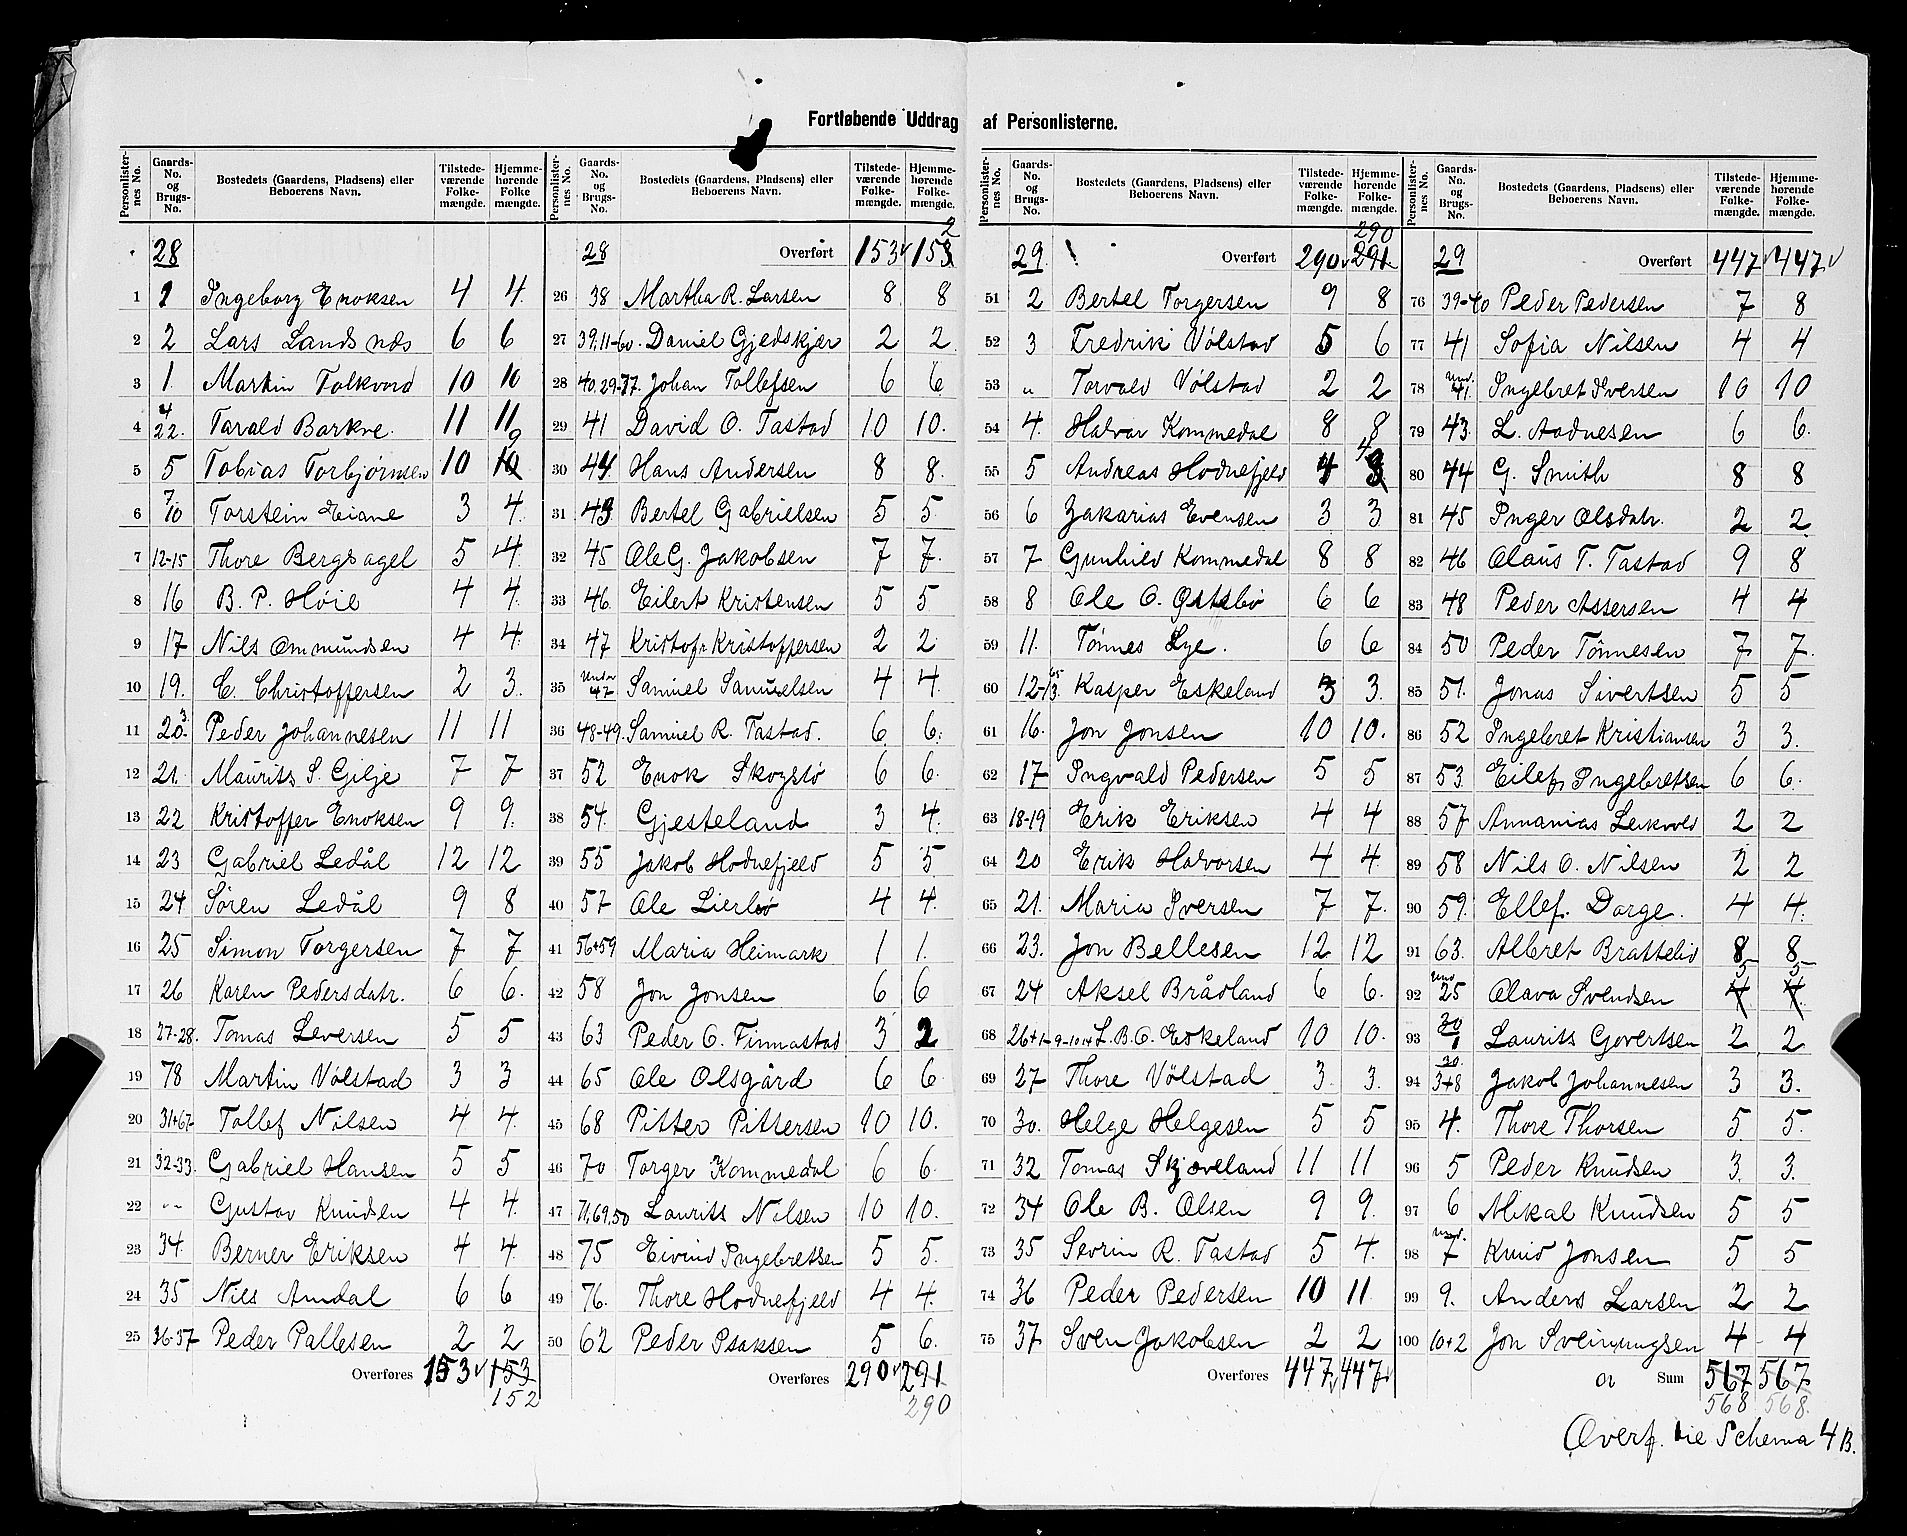 Fortløbende Uddrag af Personlisterne.
Personlister-nes No. | Gaards-No. og Brugs-No. | Bostedets (Gaardens, Pladsens) eller Beboerens Navn. | Tilstede-værende Folke-mængde. | Hjemme-hørende Folke-mængde.
28
1 | 1 | Ingeborg Enoksen | 4 | 4
2 | 2 | Lars Landsnæs | 6 | 6
3 | 1 | Martin Tolkvord | 10 | 10
4 | 4/22. | Tarald Barkve. | 11 | 11
5 | 5 | Tobias Torbjørnsen | 10 | 10 9
6 | 7/10 | Torstein Eiane | 3 | 4.
7 | 12-15 | Thore Bergsagel | 5 | 4.
8 | 16 | B. P. Høie | 4 | 4.
9 | 17 | Nils Ommundsen | 4 | 4.
10 | 19. | C. Christoffersen | 2 | 3.
11 | 20 3. | Peder Johannesen | 11 | 11
12 | 21. | Maurits S. Gilje | 7 | 7
13 | 22 | Kristoffer Enoksen | 9 | 9.
14 | 23 | Gabriel Ledål | 12 | 12
15 | 24 | Søren Ledål | 9 | 8
16 | 25 | Simon Torgersen | 7 | 7
17 | 26 | Karen Pedersdatr. | 6 | 6.
18 | 27-28. | Tomas Leversen | 5 | 5
19 | 78 | Martin Vølstad | 3 | 3
20 | 31+67 | Tollef Nilsen | 4 | 4.
21 | 32-33. | Gabriel Hansen | 5 | 5
22 | -- | Gustav Knudsen | 4 | 4.
23 | 34. | Berner Eriksen | 4 | 4.
24 | 35 | Nils Amdal | 6 | 6
25 | 36-37 | Peder Pallesen | 2 | 2
Overføres 153 153
152
Personlister-nes No. | Gaards-No. og Brugs-No. | Bostedets (Gaardens, Pladsens) eller Beboerens Navn. | Tilstede-værende Folke-mængde. | Hjemme-hørende Folke-mængde.
28 Overført 153 153 2
26 | 38 | Martha R. Larsen | 8 | 8
27 | 39.11-60. | Daniel Gjedskjær | 2 | 2
28 | 40.29-77. | Johan Tollefsen | 6 | 6
29 | 41 | David O. Tastad | 10 | 10.
30 | 44. | Hans Andersen | 8 | 8.
31 | 43 | Bertel Gabrielsen | 5 | 5
32 | 45 | Ole G. Jakobsen | 7 | 7.
33 | 46. | Eilert Kristensen | 5 | 5
34 | 47 | Kristofr Kristoffersen | 2 | 2
35 | under 47 | Samuel Samuelsen | 4 | 4.
36 | 48-49. | Samuel R. Tastad. | 6 | 6.
37 | 52 | Enok Skogsbø | 6 | 6.
38 | 54. | Gjesteland | 3 | 4.
39 | 55 | Jakob Hodnefjeld | 5 | 5
40 | 57 | Ole Lierbø | 4 | 4.
41 | 56+59 | Maria Heimark | 1 | 1.
42 | 58 | Jon Jonsen | 6 | 6
43 | 63 | Peder O. Finnastad | 3 | 2
44 | 65 | Ole Olsgård | 6 | 6
45 | 68 | Pitter Pittersen | 10 | 10.
46 | 70 | Torger Kommedal | 6 | 6
47 | 71,69,50 | Laurits Nilsen | 10 | 10.
48 | 75 | Eivind Ingebretsen | 5 | 5.
49 | 76. | Thore Hodnefjeld | 4 | 4.
50 | 62 | Peder Isaksen | 5 | 6.
Overføres 290 291
290
Personlister-nes No. | Gaards-No. og Brugs-No. | Bostedets (Gaardens, Pladsens) eller Beboerens Navn. | Tilstede-værende Folke-mængde. | Hjemme-hørende Folke-mængde.
29. Overført 290 291 290
51 | 2 | Bertel Torgersen | 9 | 8
52 | 3 | Fredrik Vølstad | 5 | 6
53 | " | Torvald Vølstad | 2 | 2
54 | 4. | Halvar Kommedal | 8 | 8
55 | 5 | Andreas Hodnefjeld | 4 | 3 4
56 | 6 | Zakarias Evensen | 3 | 3
57 | 7 | Gunhild Kommedal | 8 | 8
58 | 8 | Ole O. Østebø | 6 | 6
59 | 11. | Tønnes Lye. | 6 | 6
60 | 12-13. 65 | Kasper Eskeland | 3 | 3.
61 | 16. | Jon Jonsen | 10 | 10.
62 | 17 | Ingvald Pedersen | 5 | 5
63 | 18-19 | Erik Eriksen | 4 | 4
64 | 20 | Erik Halvorsen | 4 | 4.
65 | 21. | Maria Iversen | 7 | 7.
66 | 23. | Jon Bellesen | 12 | 12
67 | 24 | Aksel Brådland | 6 | 6.
68 | 26+1-9-10.14 | L. B. O. Eskeland | 10 | 10.
69 | 27 | Thore Vølstad | 3. | 3.
70 | 30. | Helge Helgesen | 5 | 5
71 | 32 | Tomas Skjæveland | 11 | 11
72 | 34 | Ole B. Olsen | 9 | 9.
73 | 35 | Sevrin R. Tastad | 5 | 4.
74 | 36 | Peder Pedersen | 10 | 11
75 | 37 | Sven Jakobsen | 2 | 2
Overføres 447 447
Personlister-nes No. | Gaards-No. og Brugs-No. | Bostedets (Gaardens, Pladsens) eller Beboerens Navn. | Tilstede-værende Folke-mængde. | Hjemme-hørende Folke-mængde.
29 Overført 447 447
76 | 39-40 | Peder Pedersen | 7 | 8
77 | 41 | Sofia Nilsen | 4 | 4
78 | und. 41. | Ingebret Iversen | 10 | 10
79 | 43. | L. Aadnesen | 6 | 6.
80 | 44 | G. Smith | 8 | 8
81 | 45 | Inger Olsdatr. | 2 | 2
82 | 46 | Olaus T. Tastad | 9 | 8
83 | 48 | Peder Assersen | 4 | 4
84 | 50 | Peder Tønnesen | 7 | 7.
85 | 51. | Jonas Sivertsen | 5 | 5
86 | 52 | Ingebret Kristiansen | 3 | 3.
87 | 53. | Eilef Ingebretsen | 6 | 6.
88 | 57 | Annanias Leikvold | 2 | 2
89 | 58 | Nils O. Nilsen | 2 | 2
90 | 59. | Ellef. Dorge. | 4 | 4.
91 | 63. | Albret Brattelid | 8 | 8
92 | und 25 | Olava Svendsen | 4 5 | 4 5
93 | 30 1 | Laurits Govertsen | 2 | 2
94 | 30. 3+8 | Jakob Johannesen | 3 | 3.
95 | 4. | Thore Thorsen | 5 | 5.
96 | 5 | Peder Knudsen | 3. | 3.
97 | 6 | Mikal Knudsen | 5 | 5
98 | und. 7 | Knud Jonsen | 5 | 5
99 | 9. | Anders Larsen | 2 | 2
100 | 10+2 | Jon Sveinungsen | 4 | 4
Sum 567 567
568 568.
Overf. tie Schema 4 B.